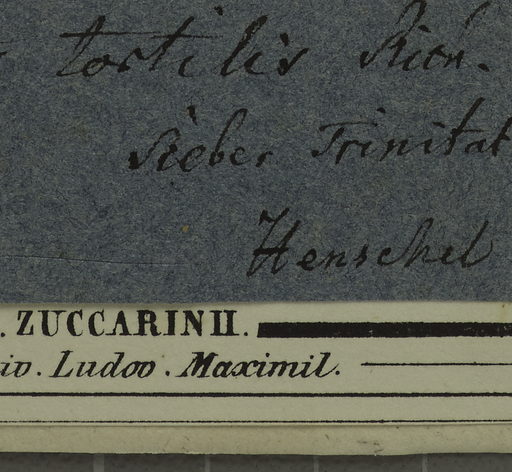 tortilis Rich.
Sieber Trinitat
Henschel
. ZUCCARINII.
iv. Ludov. Maximil.